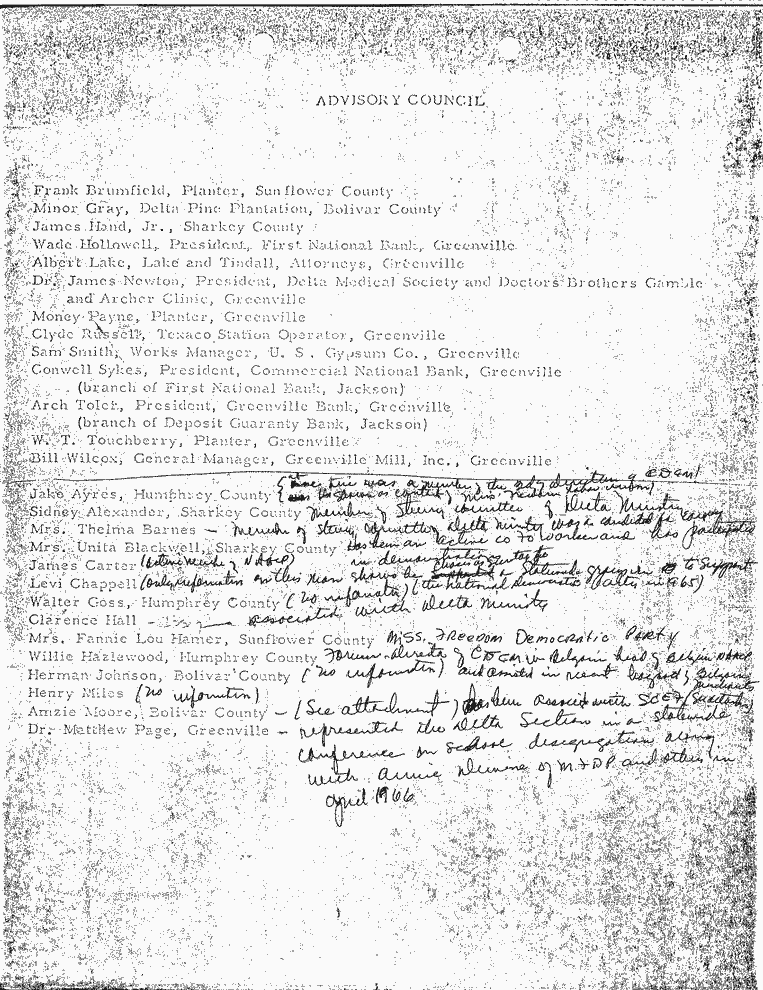 ADVISORY COUNCIL
Frank Brumfield, Planter, Sunflower County
Minor Gray, Delta Pine Plantation, Bolivar County
James Hand, Jr., Sharkey County
Wade Hollowell, President, First National Bank, Greenville
Albert Lake, Lake and Tindall, Attorneys, Greenville
Dr. James Newton, President, Delta Medical Society and Doctors Brothers Gamble
and Archer Clinic, Greenville
Money Payne, Planter, Greenville
Clyde Russell, Texaco Station Operator, Greenville
Sam Smith, Works Manager, U. S. Gypsum Co., Greenville
Conwell Sykes, President, Commercial National Bank, Greenville
(branch of First National Bank, Jackson)
Arch Toler, President, Greenville Bank, Greenville
(branch of Deposit Guaranty Bank, Jackson)
W. T. Touchberry, Planter, Greenville
Bill Wilcox, General Manager, Greenville Mill, Inc., Greenville
Jake Ayres, Humphrey County was a member of the CDGM
Sidney Alexander, Sharkey County member of Steering committee of Delta Ministry
Mrs. Thelma Barnes — member of Steering Committee Delta Ministry candidate for
Mrs. Unita Blackwell, Sharkey County has been an active worker and has participated
in demonstrations
James Carter (active member of NAACP) a Statewide group to support
Levi Chappell (only information on this man shows he (the national Democratic Party in 1965)
Walter Goss, Humphrey County (no information)
Clarence Hall — associated with Delta Ministry
Mrs. Fannie Lou Hamer, Sunflower County MISS. FREEDOM DEMOCRATIC PARTY
Willie Hazlewood, Humphrey County Former director of CDGM in Belzoni head of Belzoni NAACP
Herman Johnson, Bolivar County (no information) and in recent
Henry Miles (no information)
Amzie Moore, Bolivar County — (See attachment) has been associated with SCEF
Dr. Matthew Page, Greenville — represented the Delta Section in a statewide
conference on school desegregation along
with Annie Devine of MFDP and others in
April 1966